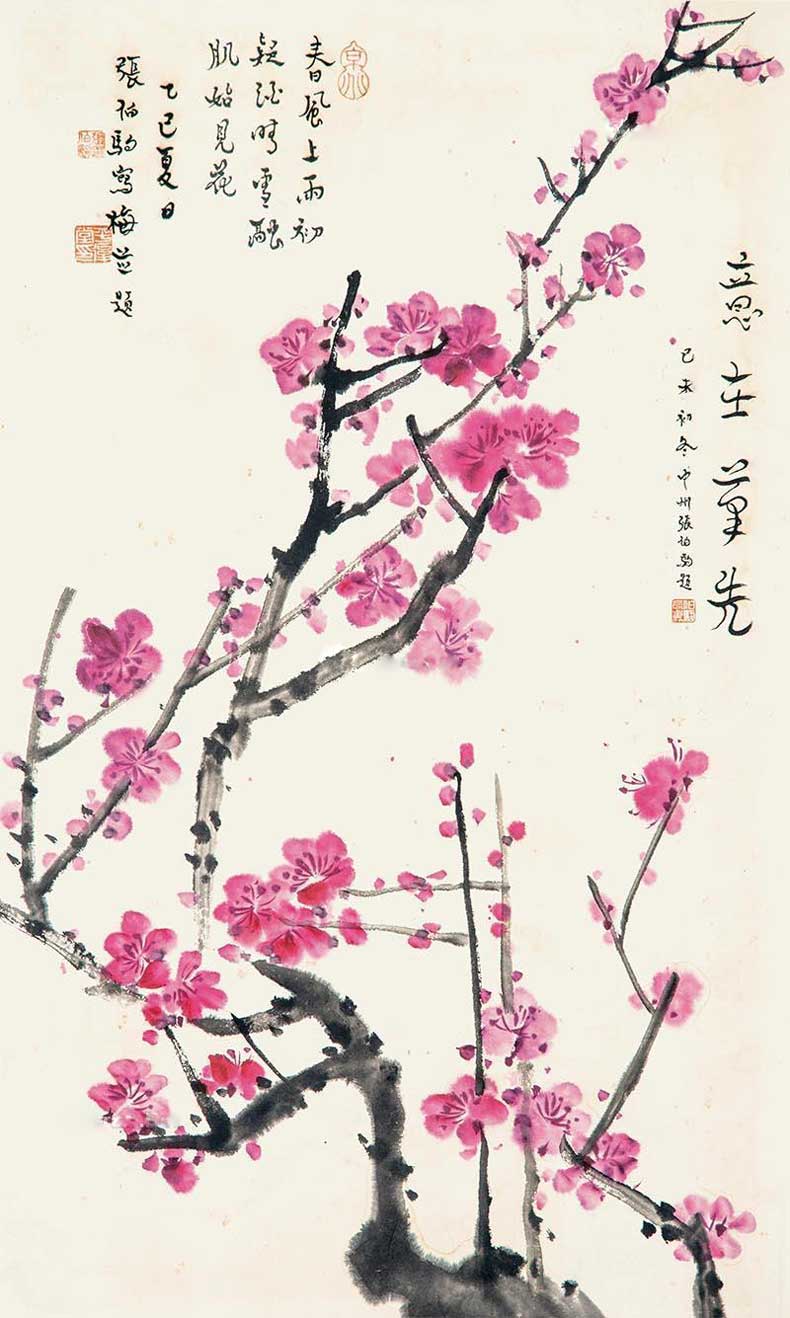 意在筆先
己未初冬中州張伯駒題
春風上雨初
疑晴雪融
肌始見花
乙巳夏日
張伯駒寫梅並題